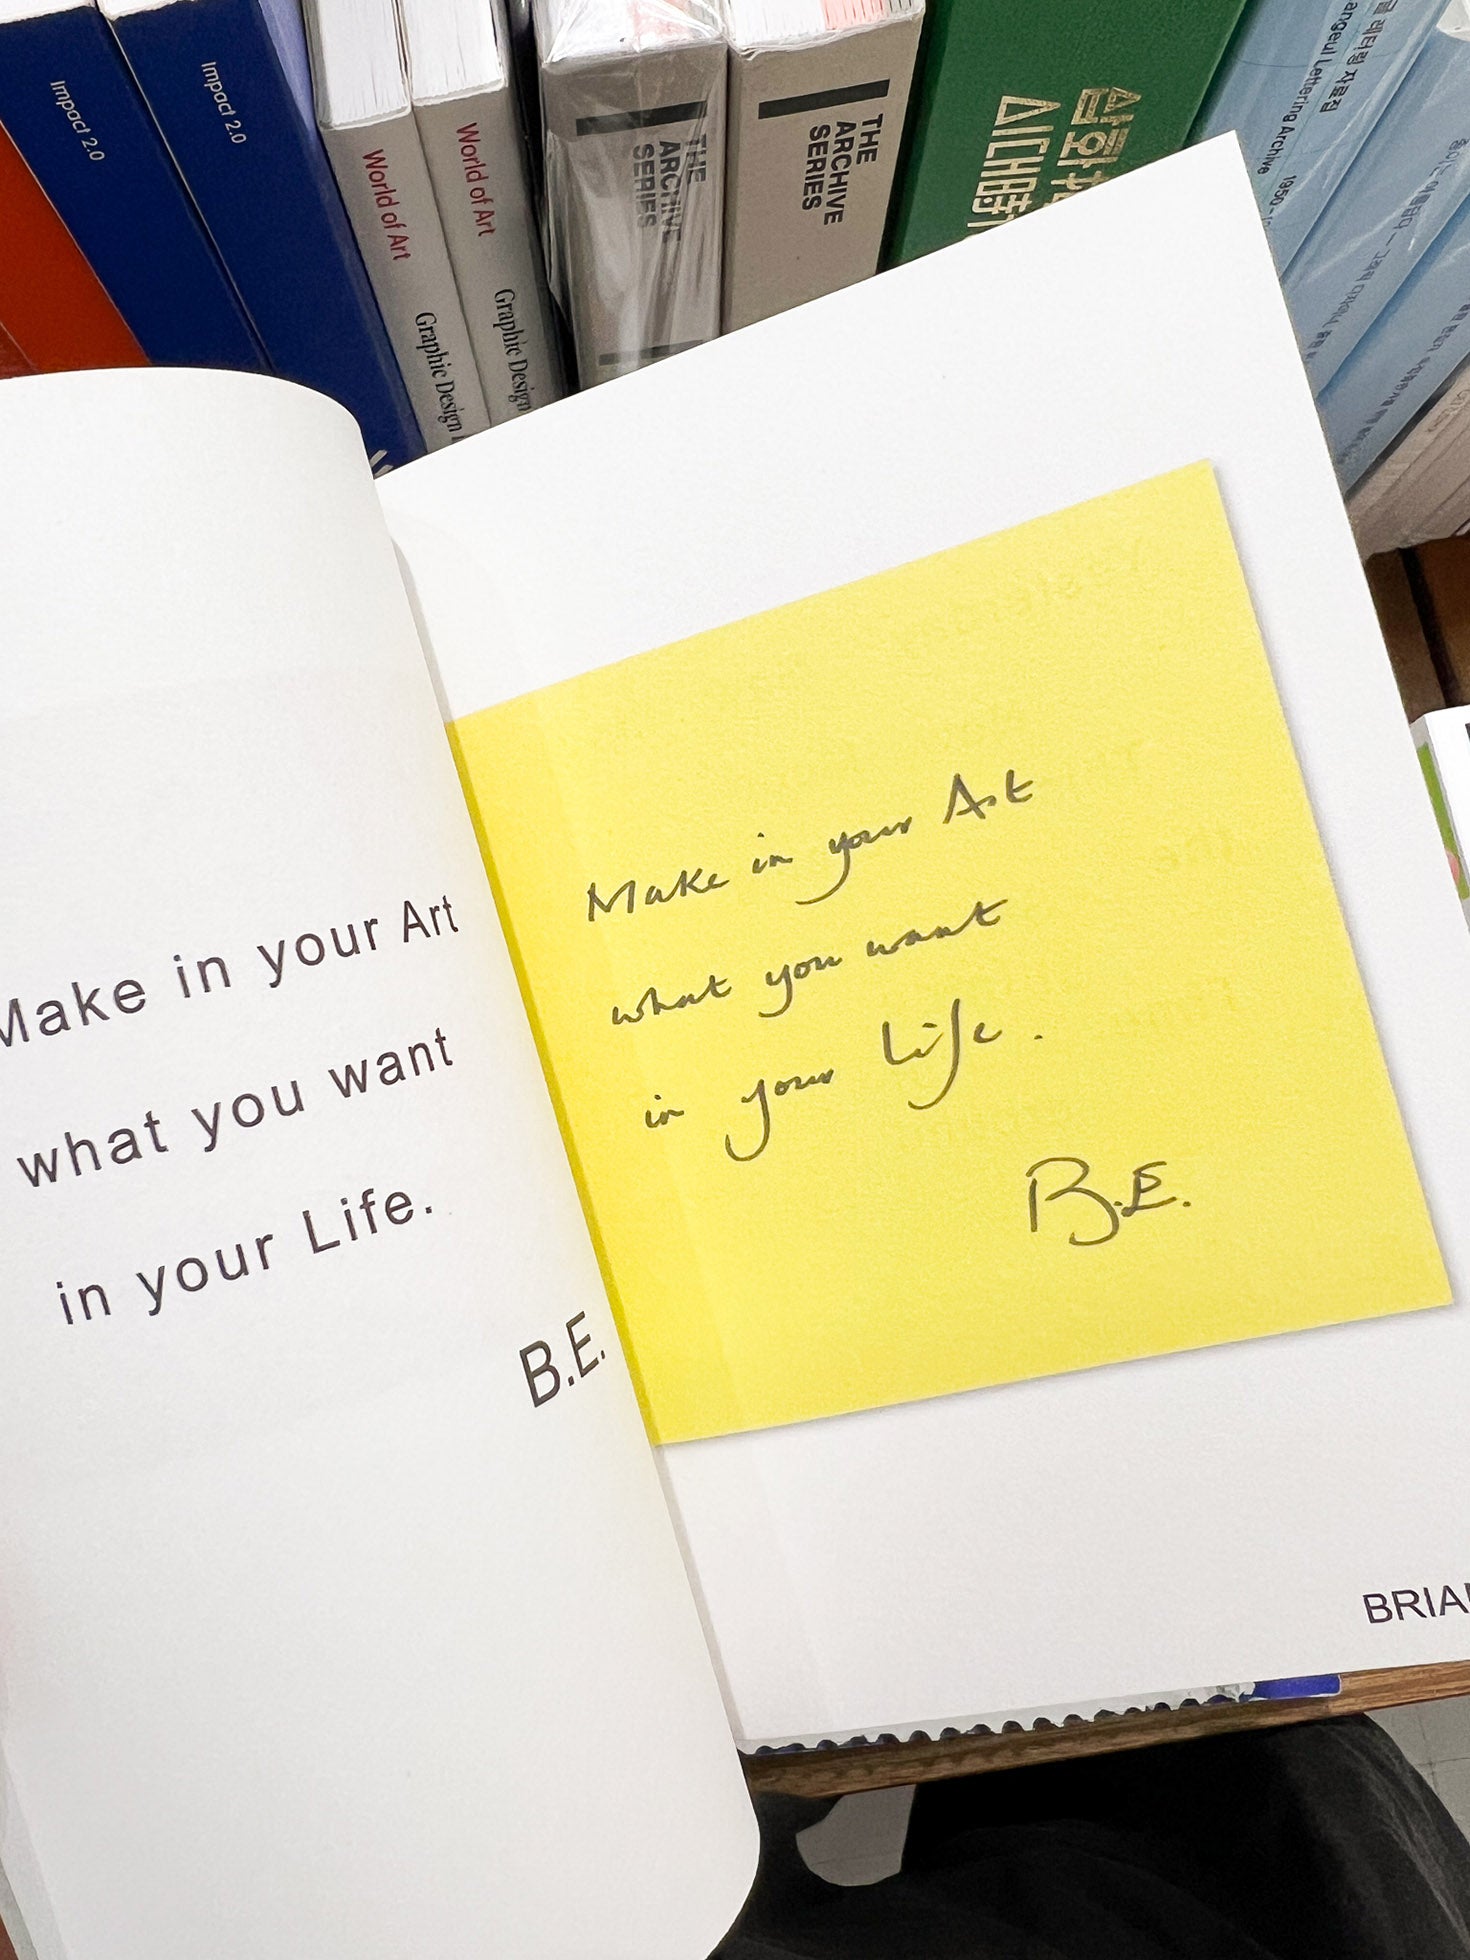 Impact 2.0
Impact 2.0
World of Art
Graphic Design
World of Art
Graphic Design
THE
ARCHIVE
SERIES
THE
ARCHIVE
SERIES
삽화
시대時
레터링 자료집
Lettering Archive 1950
Make in your Art
what you want
in your Life.
B.E.
Make in your Art
what you want
in your Life.
B.E.